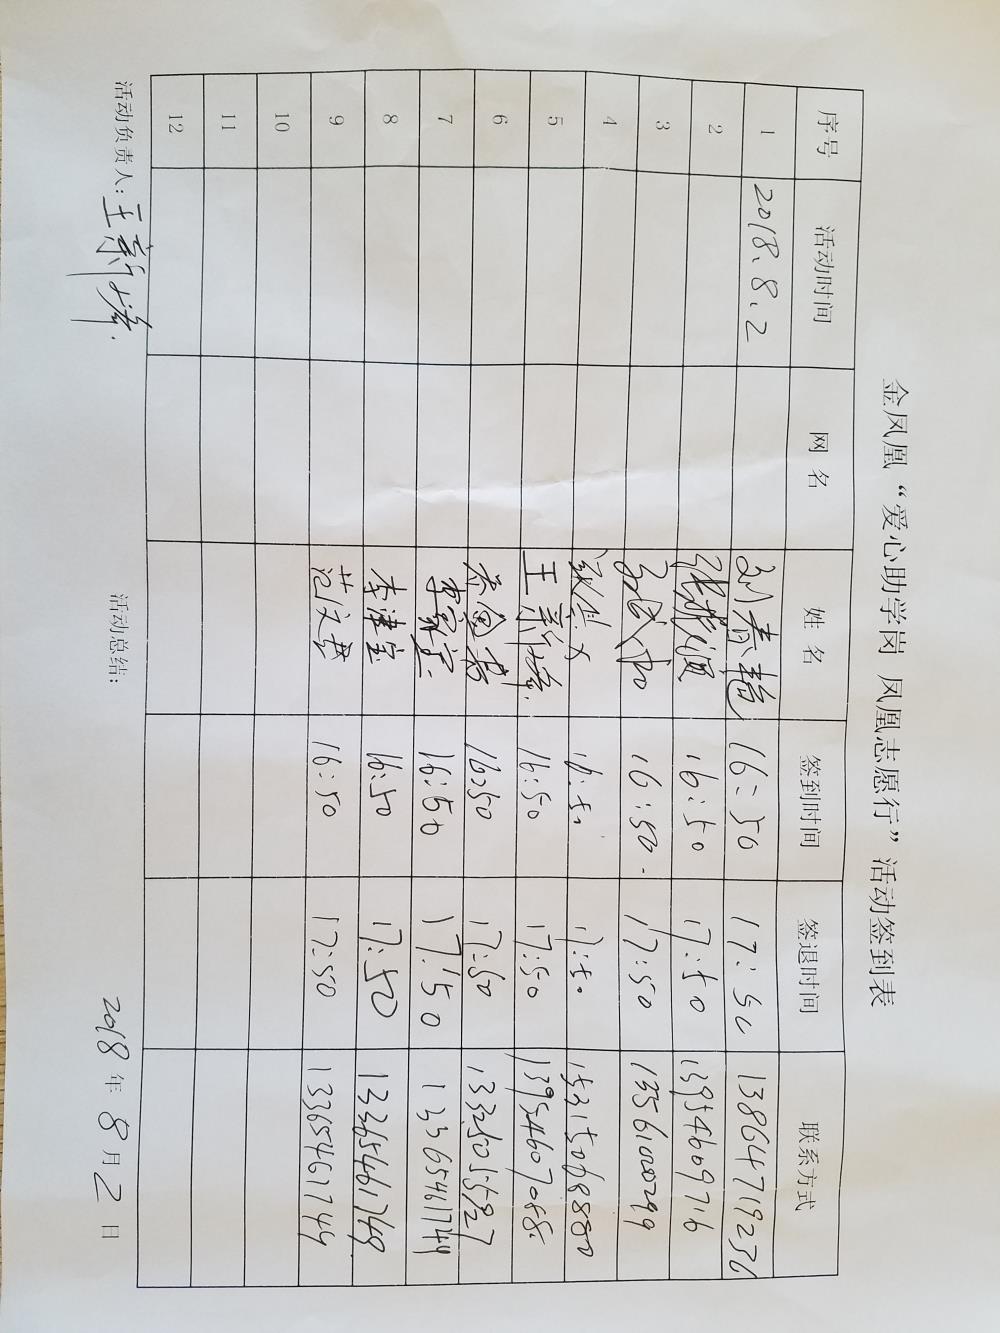 金凤凰“爱心助学岗 凤凰志愿行”活动签到表
序号 活动时间 网 名 姓 名 签到时间 签退时间 联系方式
1 2018.8.2 刘春艳 16:50 17:50 13864719236
2 16:50 17:50 13954609716
3 16:50 17:50 13561000299
4 16:50 17:50 15315068880
5 王新峰 16:50 17:50 13954607088
6 16:50 17:50 13325055927
7 16:50 17:50 13365461749
8 李津宝 16:50 17:50 13365461749
9 范文君 16:50 17:50 13365461749
10
11
12
活动负责人:王新峰 活动总结: 2018年8月2日